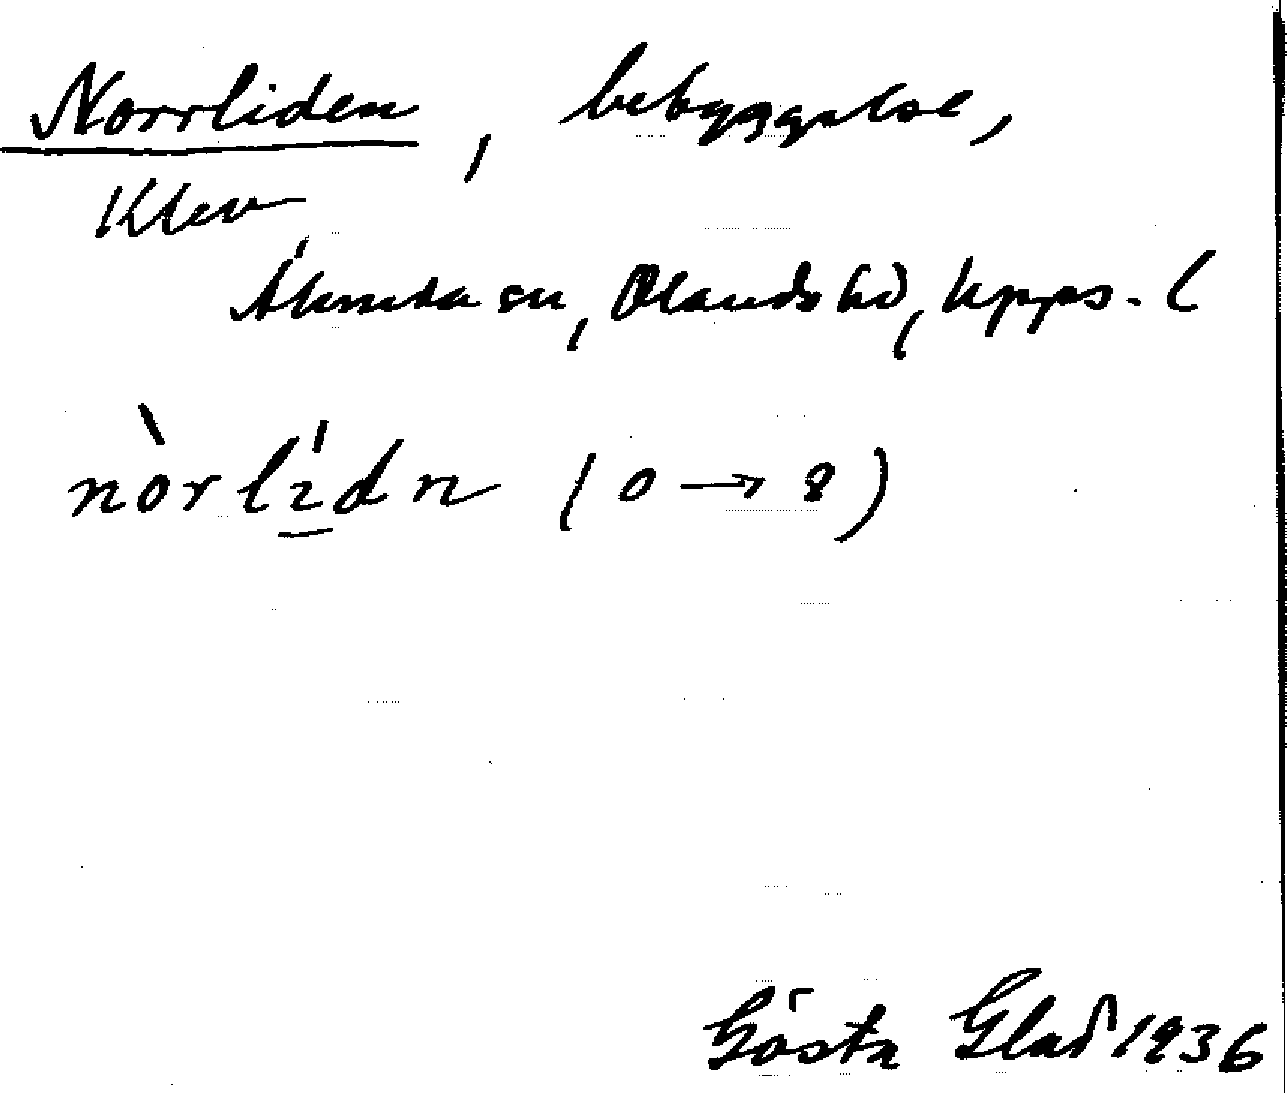 Norrliden, bebyggelse,
Klev
Alunda sn, Olands hd, Upps. l
nòrlídn (o → 8)
Gösta Glad 1936